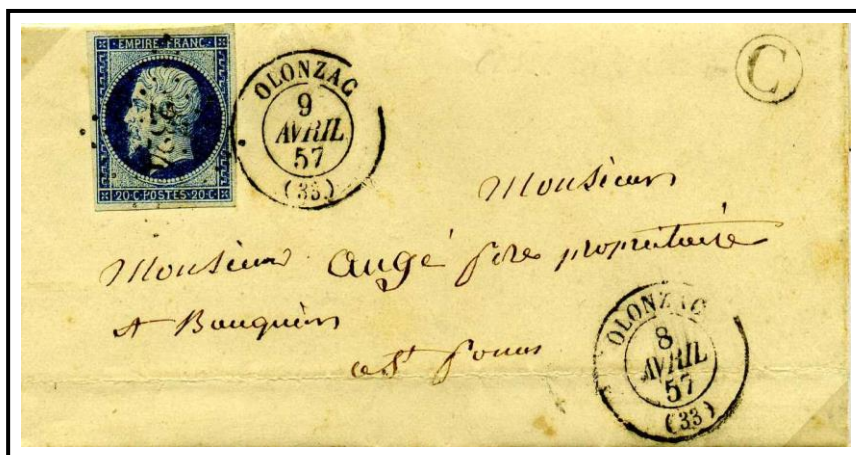 EMPIRE FRANC.
20·C·POSTES·20·C
OLONZAC
9
AVRIL
57
(33)
C
Monsieur
Monsieur Augé père propriétaire
et Banquier
à St Pons
OLONZAC
8
AVRIL
57
(33)